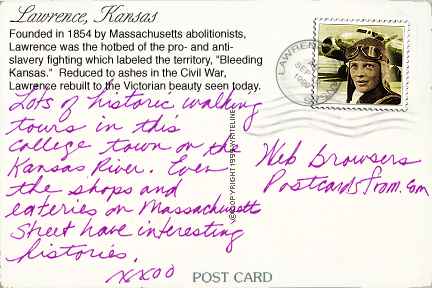 Lawrence, Kansas
Founded in 1854 by Massachusetts abolitionists,
Lawrence was the hotbed of the pro- and anti-
slavery fighting which labeled the territory, "Bleeding
Kansas." Reduced to ashes in the Civil War,
Lawrence rebuilt to the Victorian beauty seen today.
Lots of historic walking
tours in this
college town on the
Kansas River. Even
the shops and
eateries on Massachusetts
Street have interesting
histories.
xxoo
LAWRENCE
Web Browsers
Postcardsfrom.com
COPYRIGHT 1999 WRITELINE
POST CARD